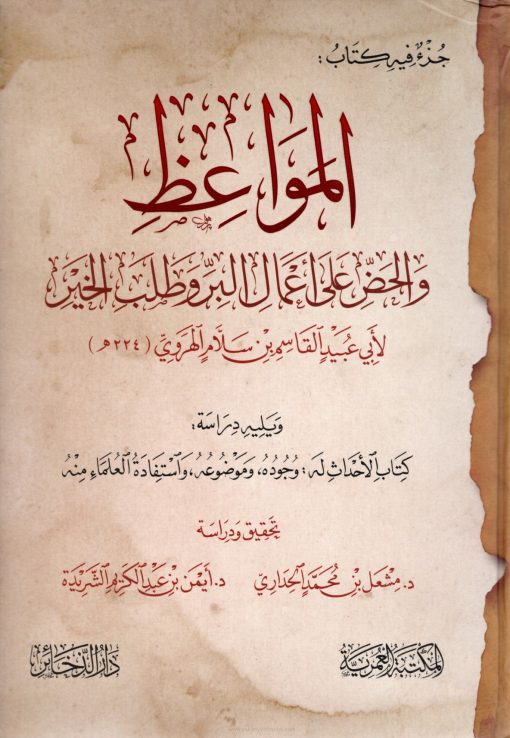 جُزْءٌ فِيهِ كِتَابُ:
المَوَاعِظِ
وَالحَضِّ عَلَى أَعْمَالِ البِرِّ وَطَلَبِ الخَيْرِ
لِأَبِي عُبَيْدٍ القَاسِمِ بْنِ سَلَّامٍ الهَرَوِيِّ (٢٢٤هـ)
وَيَلِيهِ دِرَاسَة:
كِتَابِ الأَحْدَاثِ لَهُ: وُجُودُهُ، وَمَوْضُوعُهُ، وَاسْتِفَادَةُ العُلَمَاءِ مِنْهُ
تَحْقِيق وَدِرَاسَة
د. مِشْعَل بْنُ مُحَمَّدٍ الحَدَارِيّ د. أَيْمَن بْنُ عَبْدِ الكَرِيْمِ الشُّرَيْدَة
المَكْتَبَةُ العُمَرِيَّةُ دَارُ الذَّخَائِر